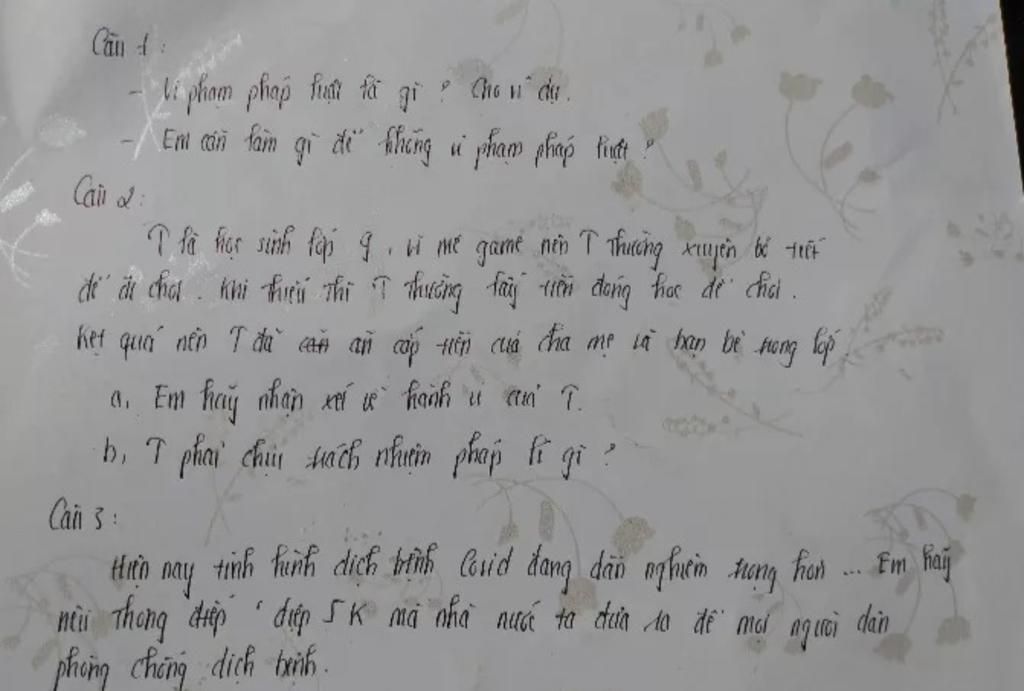 Câu 1:
- Vi phạm pháp luật là gì? Cho ví dụ.
- Em cần làm gì để không vi phạm pháp luật?
Câu 2:
T là học sinh lớp 9, vì mê game nên T thường xuyên bỏ tiết
để đi chơi. Khi thiếu thì T thường lấy tiền đóng học để chơi.
Kết quả nên T đã ăn cắp tiền của cha mẹ và bạn bè trong lớp.
a, Em hãy nhận xét về hành vi của T.
b, T phải chịu trách nhiệm pháp lí gì?
Câu 3:
Hiện nay tình hình dịch bệnh Covid đang dần nghiêm trọng hơn ... Em hãy
nêu thông điệp ' điệp 5K mà nhà nước ta đưa ra để mọi người dân
phòng chống dịch bệnh.